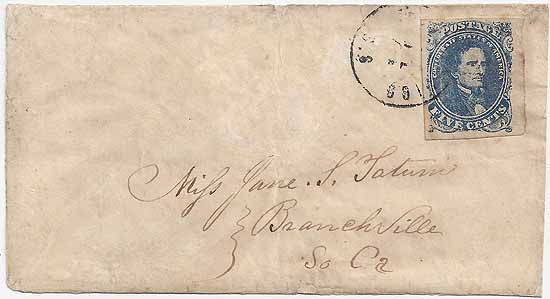 POSTAGE
CONFEDERATE STATES OF AMERICA
FIVE CENTS
Miss Jane. S. Tatum
Branchville
So Ca